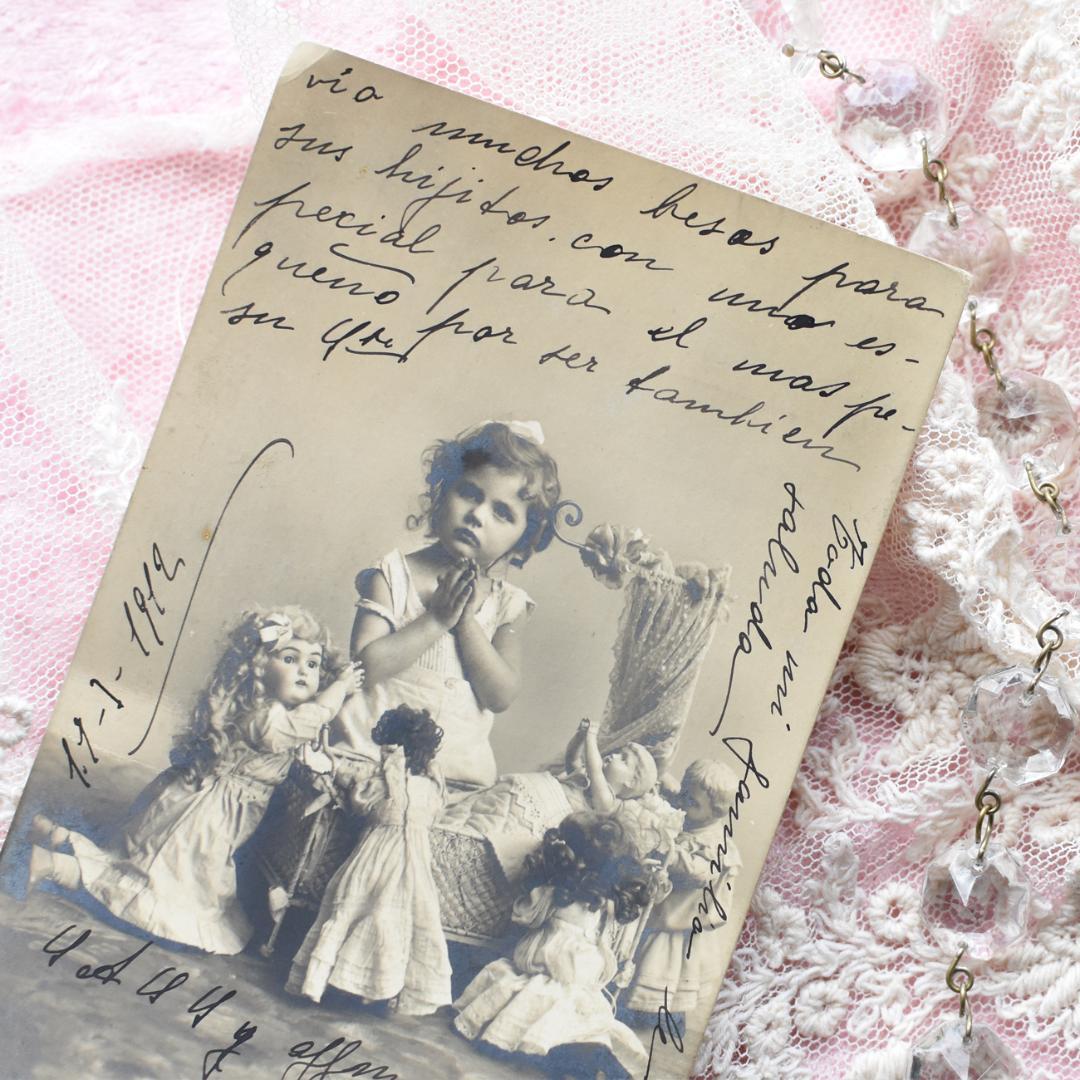 vio muchos besos para
sus hijitos. con uno es-
pecial para el mas pe-
queño por ser tambien
su
Toda mi familia le
saluda
17-7-1912